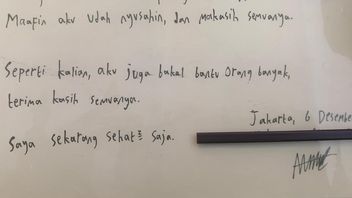 Maafin aku udah nyusahin, dan makasih semuanya.
Seperti kalian, aku juga bakal bantu orang banyak,
terima kasih semuanya.
Jakarta, 6 Desembe
Saya sekarang sehat² saja.